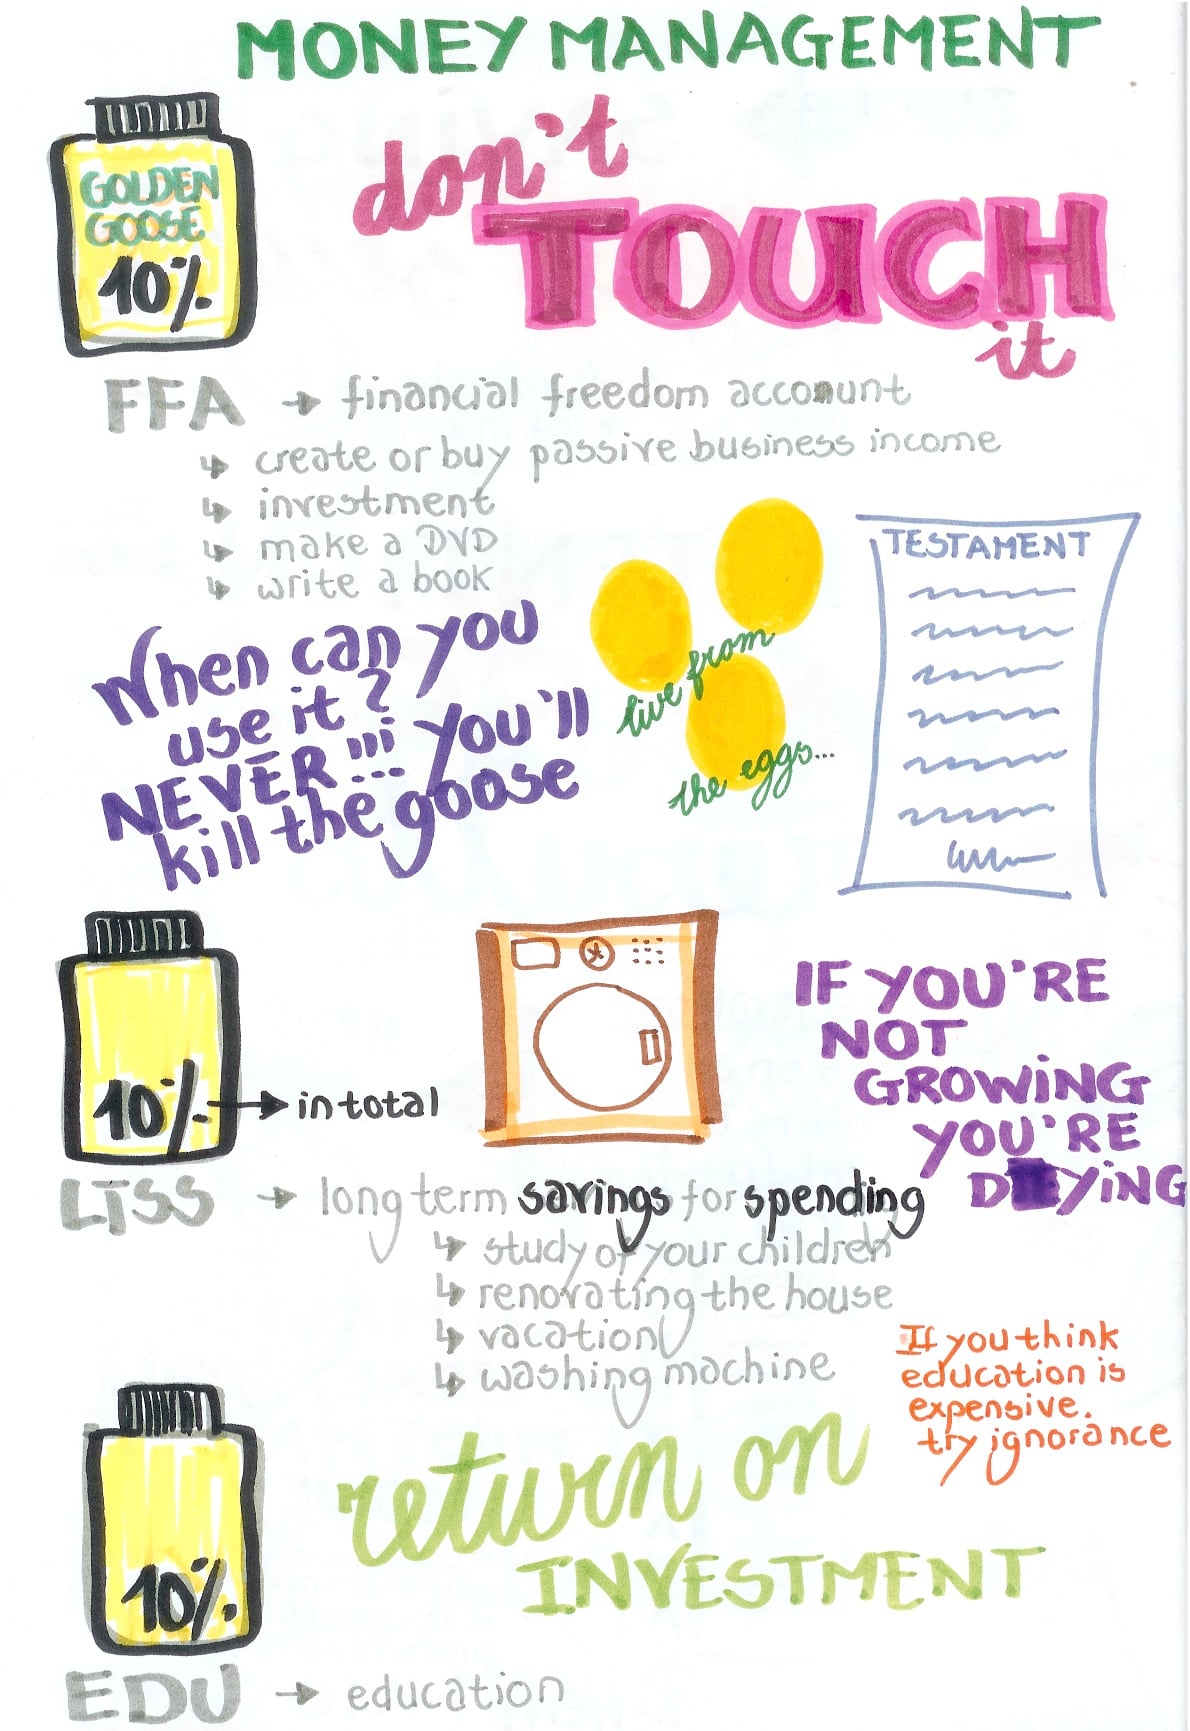 MONEY MANAGEMENT
GOLDEN
GOOSE
10%
don't
TOUCH
it
FFA → financial freedom account
↳ create or buy passive business income
↳ investment
↳ make a DVD
↳ write a book
When can you
use it?
NEVER!!! You'll
kill the goose
live from
the eggs...
TESTAMENT
10% → in total
IF YOU'RE
NOT
GROWING
YOU'RE
DYING
LTSS → long term savings for spending
↳ study of your children
↳ renovating the house
↳ vacation
↳ washing machine
If you think
education is
expensive.
try ignorance
return on
INVESTMENT
10%
EDU → education